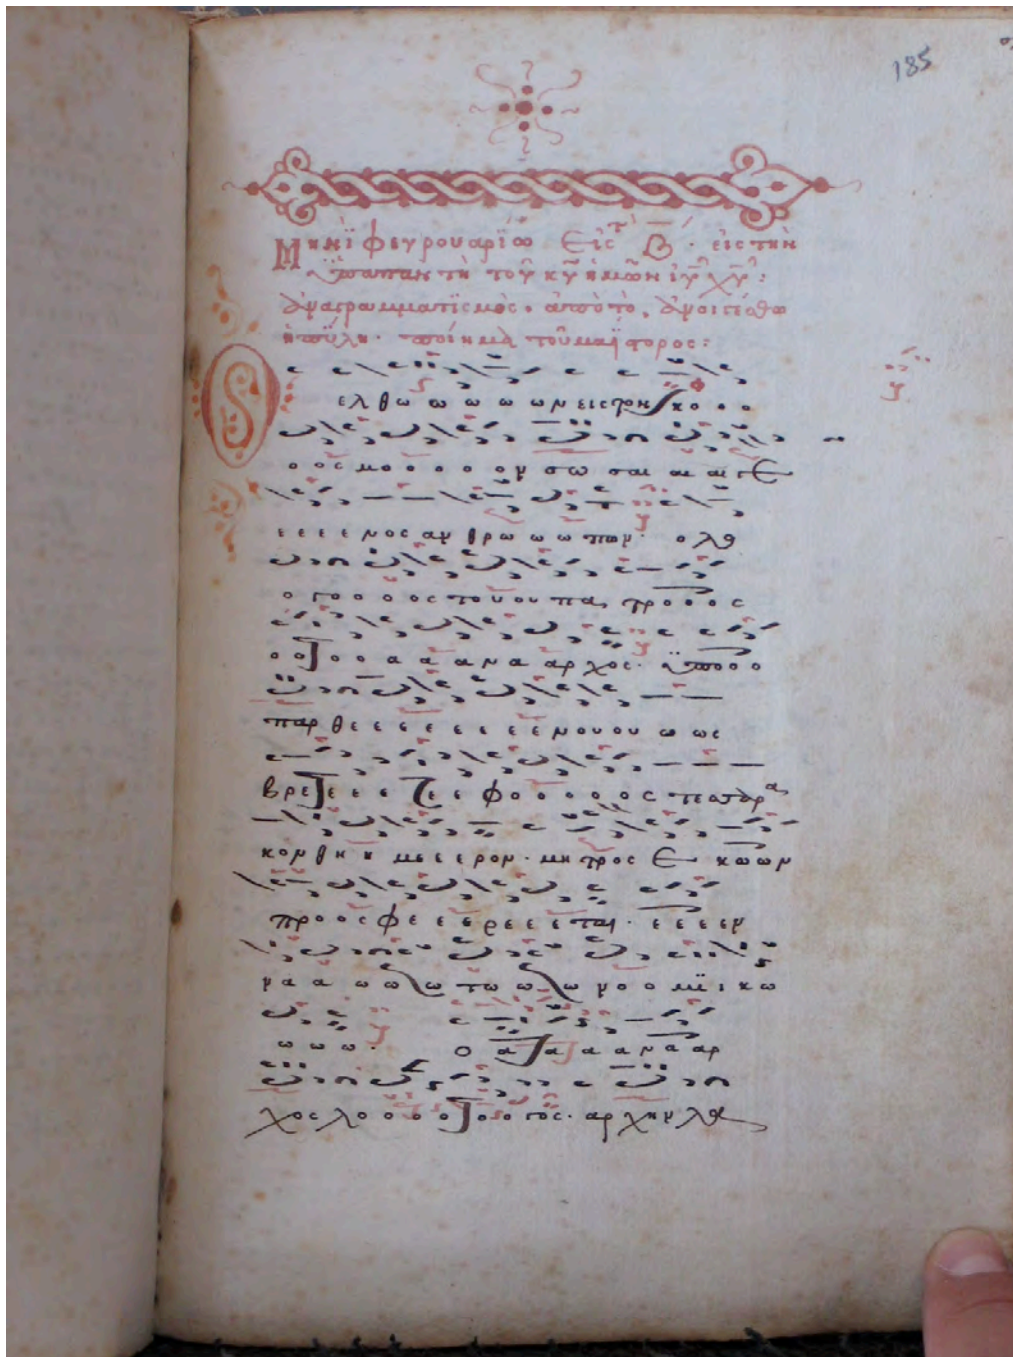 185
Μηνὶ φεγρουαρίω Εἰς τ Β· εἰς τὴν
ὑπαπαντὴ τοῦ κυ ἡμῶν ιυ χυ:
ἀναγραμματισμὸς. ἀπὸ τὸ, ἀνοιγέσθω
ἡ πύλη. ποίημα τοῦ μαΐστορος:
Ο
ελθω ω ω ω ω ων εις τον κο ο ο
ο ος μο ο ο ο ον σω σαι αι αι γε
ε ε ε ε νος αν θρω ω ω πων. ο λο
ο γο ο ο ος του ου πα τρο ο ο ς
ο ο ο ο α α α να α αρ χος. υπο ο ο
παρ θε ε ε ε ε ε ε νου ου ω ως
βρε ε ε ε ε ε φο ο ο ο ο ς τεσσαρα
κον θη η με ε ε ρον. μη τρος ε κω ων
προ ος φε ε ε ρε ε ε ται. ε ε ε εν
να α α ω ω τω ω ω νο ο μι ι κω
ω ω ω. Ο α α α α να α αρ
χος λο ο ο ο ο ο γος. αρ χην λα